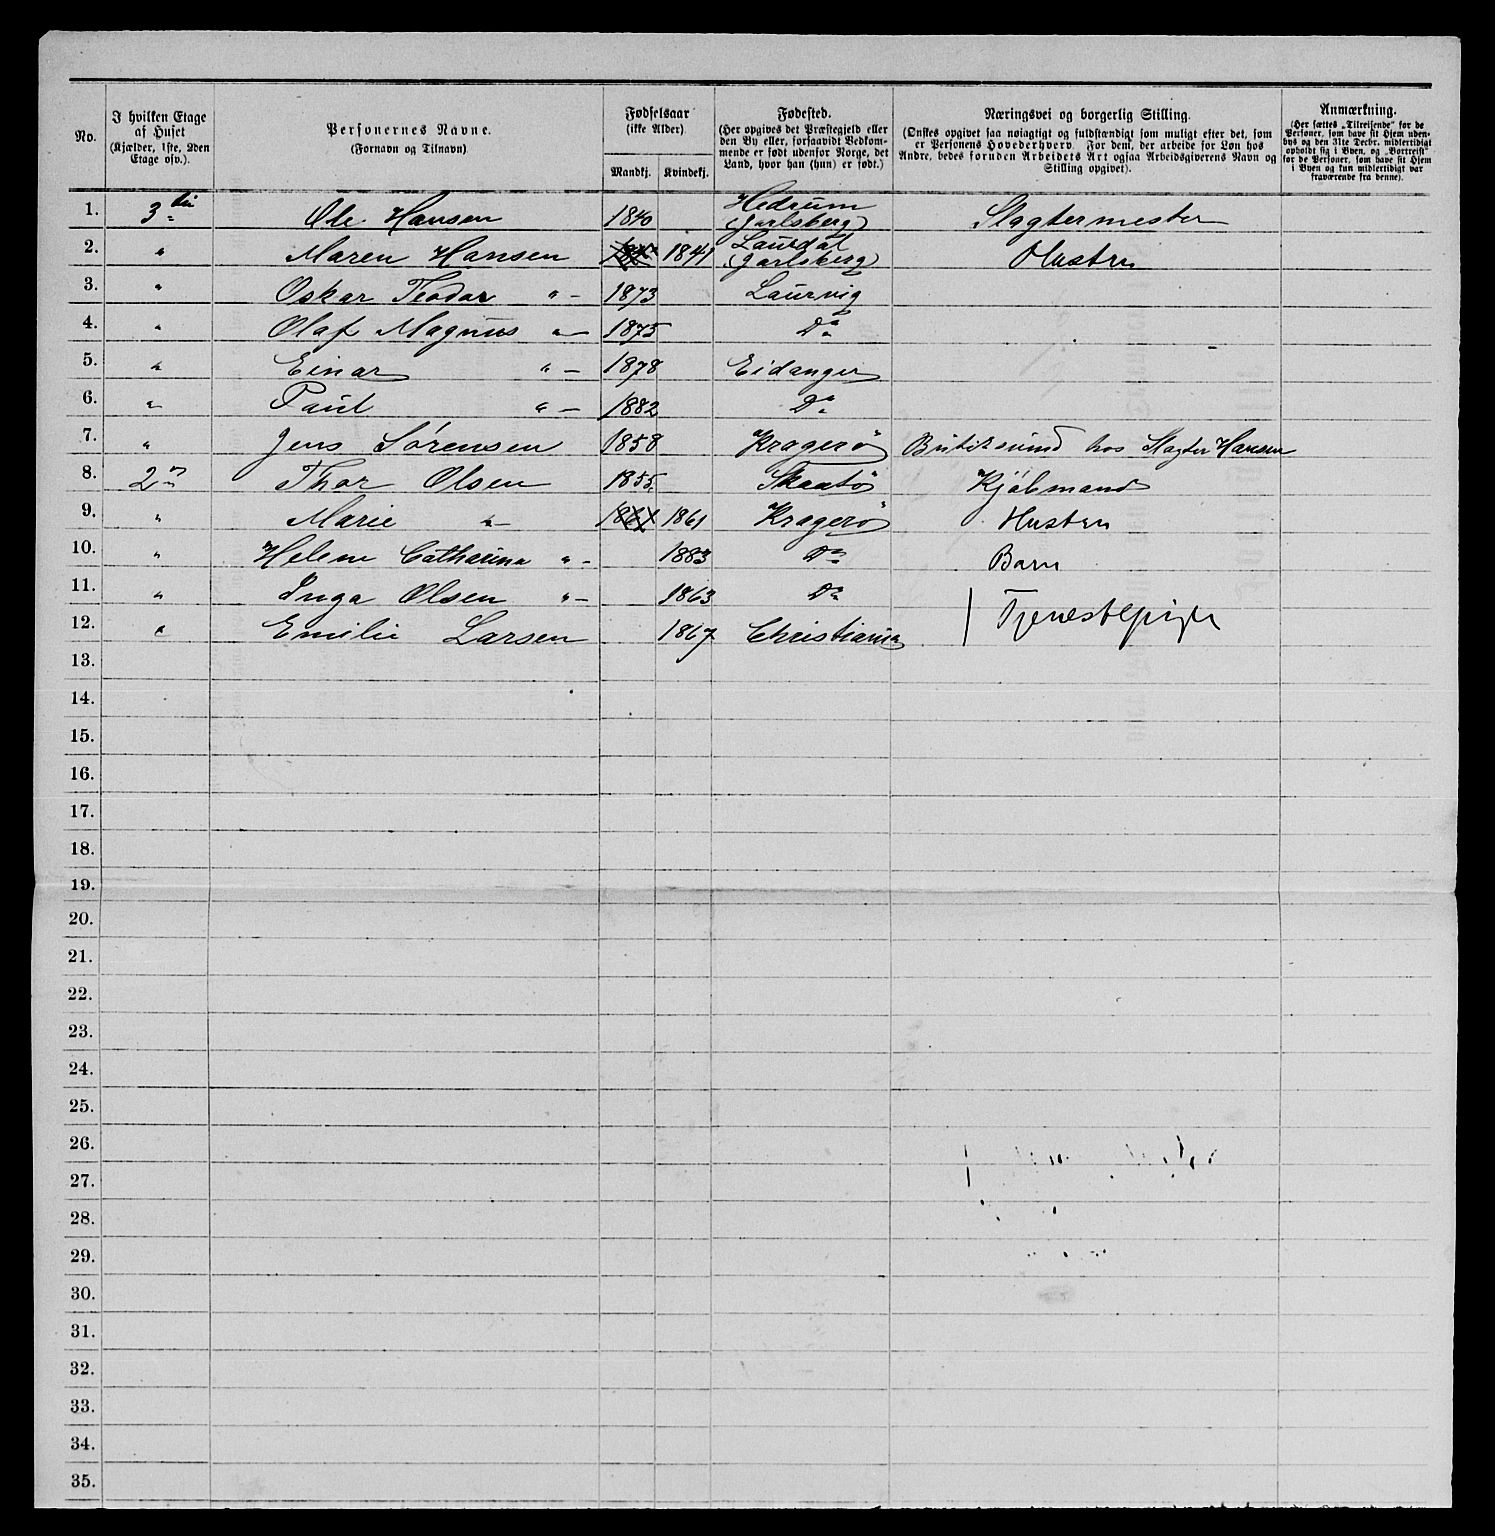 No.
I hvilken Etage af Huset
(Kjælder, 1ste, 2den Etage osv.).
Personernes Navne.
(Fornavn og Tilnavn)
Fødselsaar
(ikke Alder)
Mandkj. Kvindekj.
Fødested.
(Her opgives det Præstegjeld eller
den By eller, forsaavidt Vedkom-
mende er født udenfor Norge, det
Land, hvor han (hun) er født.)
Næringsvei og borgerlig Stilling.
(Ønskes opgivet saa nøiagtigt og fuldstændigt som muligt efter det, som
er Personens Hovederhverv. For dem, der arbeide for Løn hos
Andre, bedes foruden Arbeidets Art ogsaa Arbeidsgiverens Navn og
Stilling opgivet).
Anmærkning.
(Her sættes „Tilreisende" for de
Personer, som have sit Hjem uden-
bys og den 31te Decbr. midlertidigt
opholdt sig i Byen, og „Bortreist"
for de Personer, som have sit Hjem
i Byen og kun midlertidigt var
fraværende fra denne).
1. 3die Ole Hansen 1840 Hedrum (Jarlsberg) Slagtermester
2. " Maren Hansen 1841 Laurdal (Jarlsberg) Hustru
3. " Oskar Teodor " – 1873 Laurvig
4. " Olaf Magnus " – 1875 Do
5. " Einar " – 1878 Eidanger
6. " Paul " – 1882 Do
7. " Jens Sörensen 1858 Kragerö hos Slagter Hansen
8. 2n Thor Olsen 1855 Skaatö Kjöbmand
9. " Marie " – 1861 Kragerö Hustru
10. " Helene Catharina " – 1883 Do Barn
11. " Inga Olsen " – 1863 Do
12. " Emilie Larsen 1867 Christiania Tjenestepige
13.
14.
15.
16.
17.
18.
19.
20.
21.
22.
23.
24.
25.
26.
27.
28.
29.
30.
31.
32.
33.
34.
35.